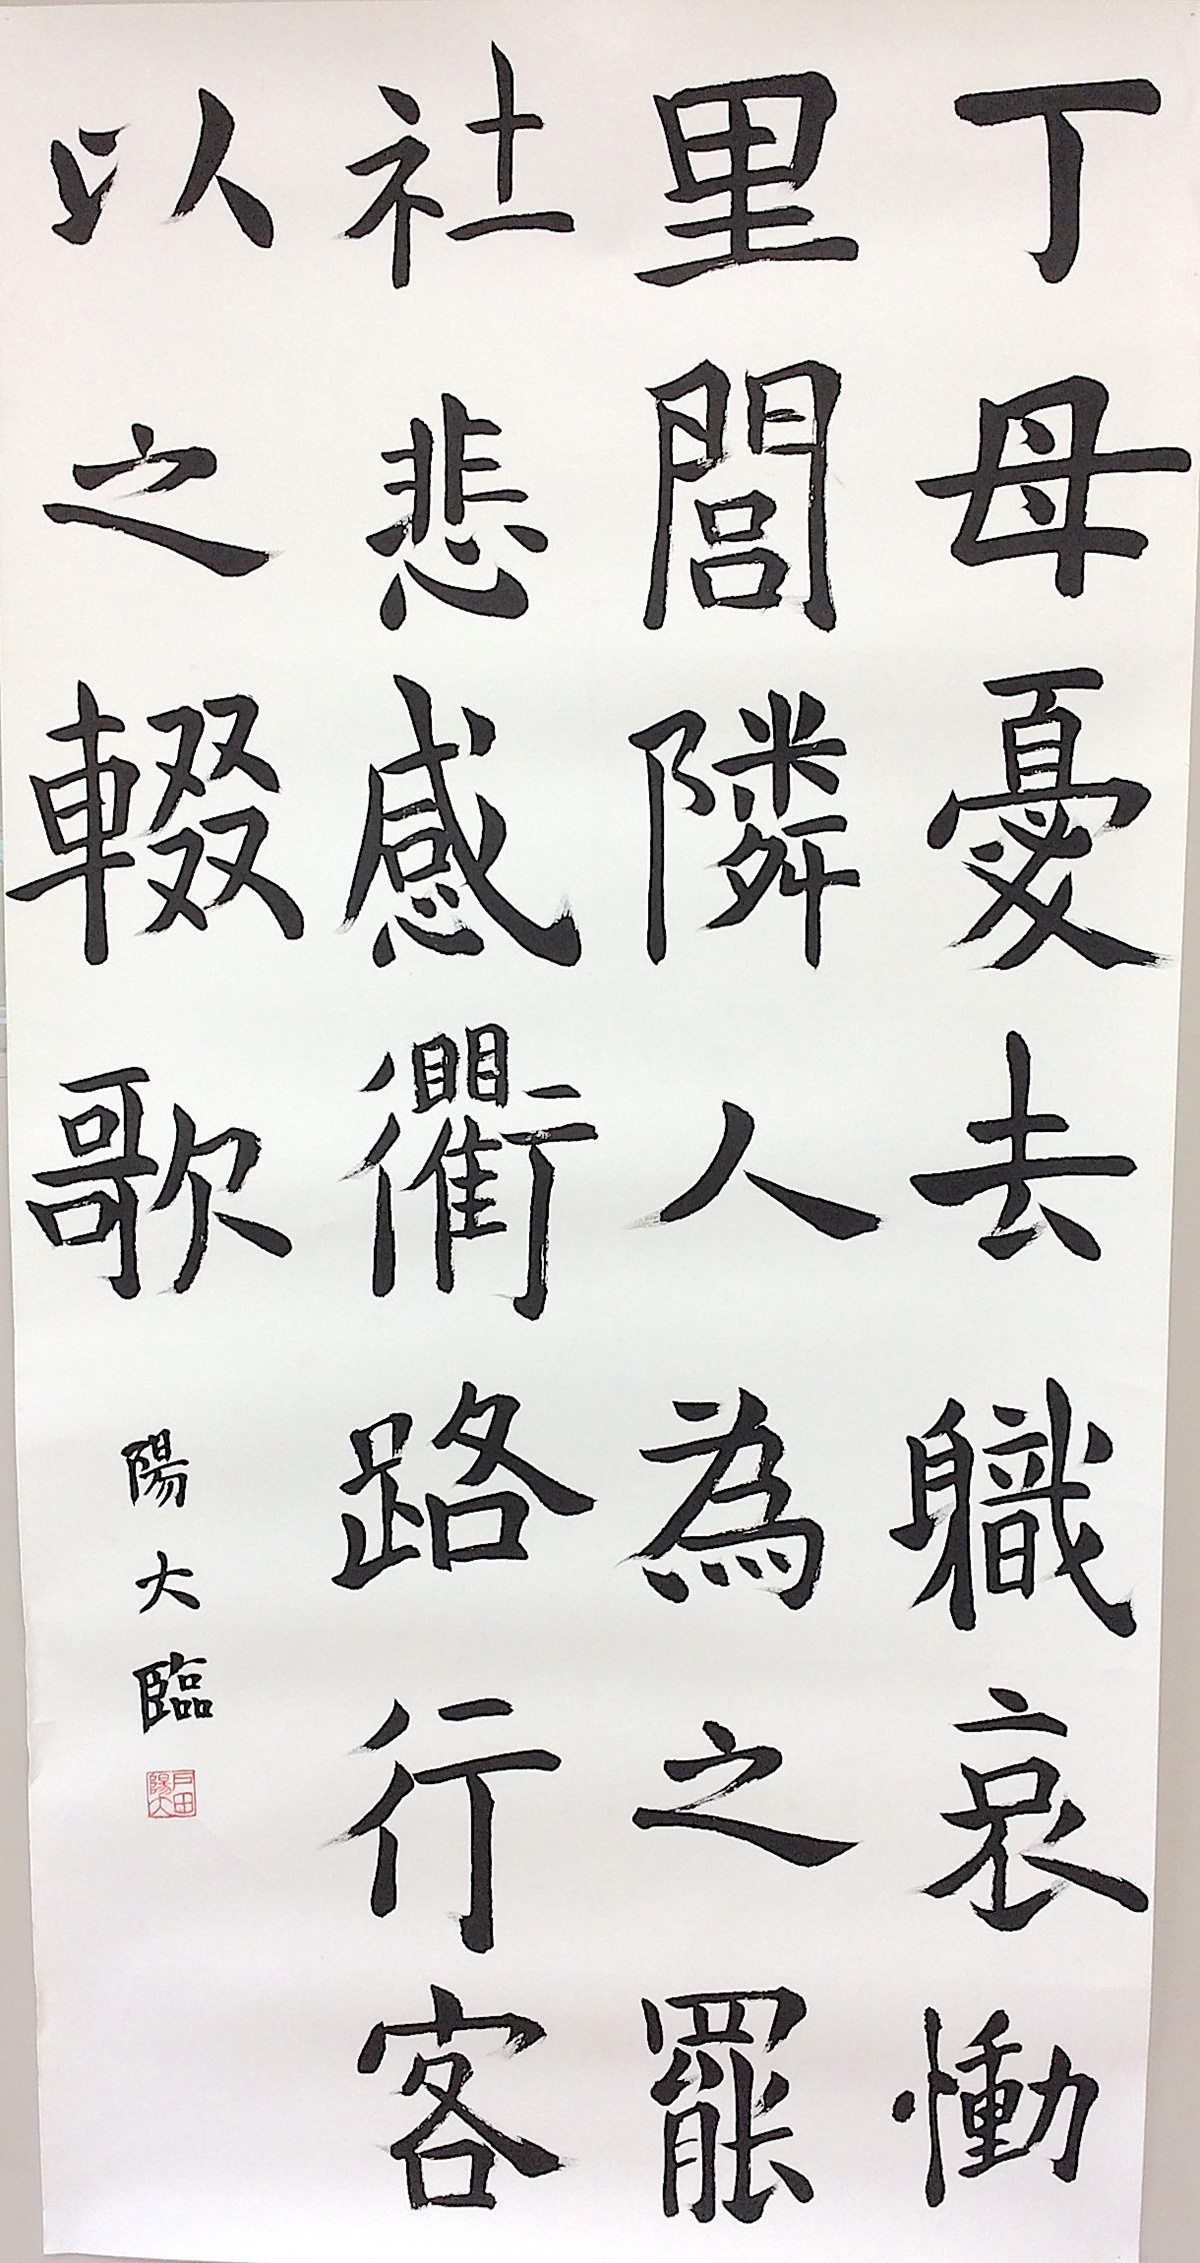 丁母憂去職哀慟
里閭隣人為之罷
社悲感衢路行客
以之輟歌
陽大臨
戸田
陽大